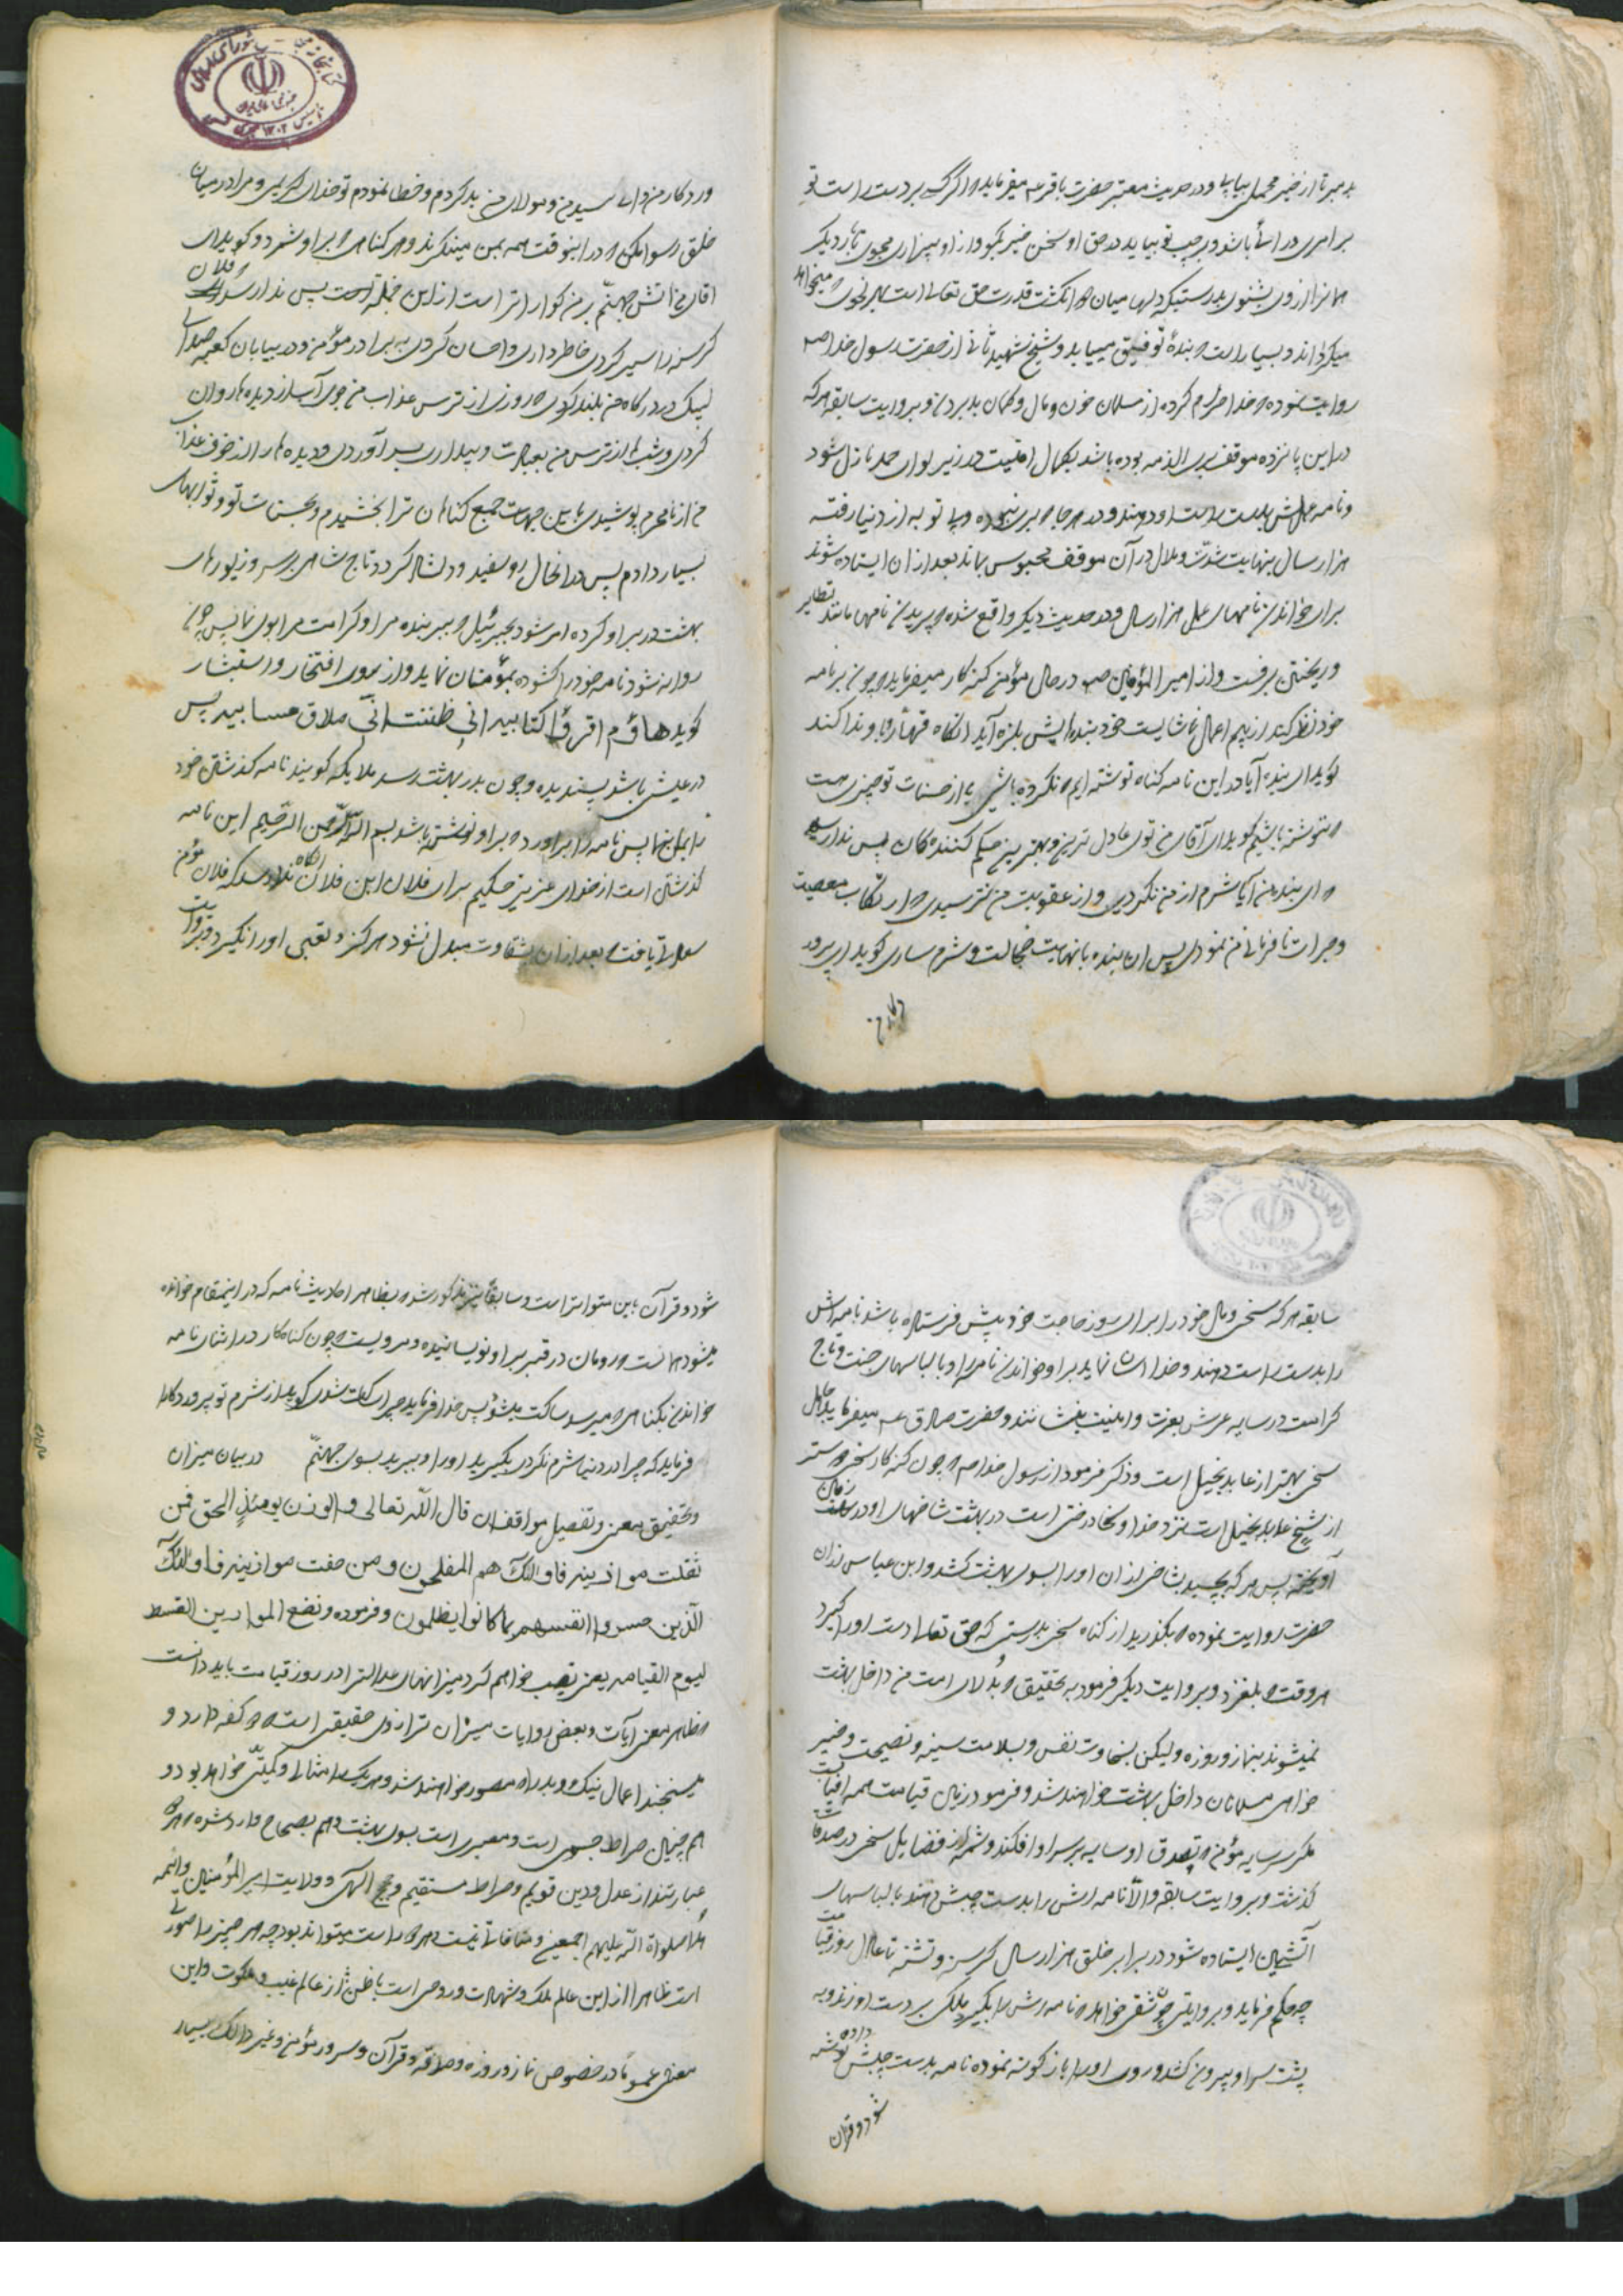 بدبر تا از خبر محملی بیابی و در حدیث معتبر حضرت باقر عه میفرماید که اگر بر دست راست تو
برادری در راست باشد و بر چپ تو بیاید در حق او سخن خیر بگو و از او بیزاری مجوی تا بار دیگر
از وی بشنوی بدرستیکه دلها میان دو انکشت قدرت حق تعالی است بهر نحوی که میخواهد
میکرداند و بسیار است که بنده توفیق مییابد و شیخ شهید ثانی از حضرت رسول خدا صم
روایت نموده که خدا حرام کرده از مسلمان خون و مال و کمان بد بردن و بروایت سابقه هرکه
در این پانزده موقف بری الذمه بوده باشد بکمال امنیت در زیر لوای حمد نازل شود
و نامه عملش بدست راست او دهند و در هر جا که بری نبوده و بی توبه از دنیا رفته
هزار سال بنهایت شدت و ملال در آن موقف محبوس بماند بعد از ان ایستاده شوند
برای خواندن نامهای عمل هزار سال و در حدیث دیکر واقع شده که پریدن نامها مانند تطایر
و ریختن برفست و از امیر المؤمنین صم در حال مؤمن کنه کار میفرماید که چون بر نامه
خود نظر کند از بیم اعمال ناشایست خود بندهایش بلرزه آید انکاه قهار باو ندا کند
کوید ای بنده آیا در این نامه کناه نوشته ایم که نکرده باشی یا از حسنات تو چیزی هست
که ننوشته باشیم کوید ای آقای من توی عادل ترین و بهترین حکم کنندهکان پس ندا رسد
که ای بنده من آیا شرم از من نکردی و از عقوبت من نترسیدی که ارتکاب معصیت
و جرات نافرمانی من نمودی پس ان بنده با نهایت خجالت و شرم ساری کوید ای پرور
ورد کار من و ای سید من و مولای من بد کردم و خطا نمودم تو خدای کریمی و مرا در میان
خلق رسوا مکن که در اینوقت همه بمن مینکرند و هر کناهی که بر او شمرد و کوید ای
اقای من آتش جهنم بر من کوارا تر است از این خجلت پس ندا رسد که فلان
کرسنه را سیر کردی خاطر داری و احسان کردی به برادر مؤمن و در بیابان کعبه صدای
لبیک در درکاه من بلند کردی و روز از ترس عذاب من جوی آب از دیدهها روان
کردی و شبها از ترس من بعبادت و بیداری بسر آوردی و دیدهها را از خوف عذاب
من از نامحرم پوشیدی باین جهت جمیع کناهان ترا بخشیدم و بحسنات تو ثوابهای
بسیار دادم پس در انحال رو سفید و دلشاد کردد و تاج شاهی بر سر و زیورهای
بهشت در بر او کرده امر شود بجبرئیل که ببر بنده مرا و کرامت مرا بوی نما پس چون
روانه شود نامه خود را کشوده بمؤمنان نماید و از روی افتخار و استبشار
کوید هاؤم اقرؤا کتابیه انی ظننت انی ملاق حسابیه پس
در عیش باشد پسندیده و چون بدر بهشت رسد ملایکه کویند نامه کذشتن خود
را بما بنما پس نامه را برآورد که بر او نوشته باشد بسم الله الرحمن الرحیم این نامه
کذشتن است از خدای عزیز حکیم برای فلان ابن فلان انکاه ندا رسد که فلان مؤمن
سعادتی یافت که بعد از ان بشقاوت مبدل نشود هرکز و تعبی او را نکیرد و بروایت
سابقه هرکه سخی و مال خود را برای روز حاجت خود پیش فرستاده باشد نامه اش
را بدست راست دهند و خدا اسان نماید بر او خواندن نامه را و با لباسهای جنت و تاج
کرامت در سایه عرش بعزت و امنیت بنشانند و حضرت صادق عه میفرماید جاهل
سخی بهتر از عابد بخیل است و ذکر فرمود از رسول خدا صم که جون کنه کار سخی بهتر
از شیخ عابد بخیل است نزد خدا و سخا درختی است در بهشت شاخهای او در زمان
آویخته پس هر که بچسبد بشاخی از ان او را بسوی بهشت کشد و ابن عباس از ان
حضرت روایت نموده که بکذرید از کناه سخی بدرستی که حق تعالی دست او را کیرد
هر وقت که بلغزد و بروایت دیکر فرمود به تحقیق که ابدالان امت من داخل بهشت
نمیشوند بنماز و روزه ولیکن بسخاوت نفس و بسلامت سینه و نصیحت و خیر
خواهی مسلمانان داخل بهشت خواهند شد و فرمود زمین قیامت همه افتاب است
مکر سر سایه مؤمن که تصدق او سایه بر سر او افکند و شمه از فضایل سخی در صدقات
کذشت و بروایت سابقه و الا نامه اش را بدست چپش دهند با لباسهای
آتشین ایستاده شود در برابر خلق هزار سال کرسنه و تشنه تا عادل روز قیامت
چه حکم فرماید و بروایتی چون شقی خواهد که نامه اش را بکیرد ملکی بر دست او زند و به
پشت سر او بیرون کشد و روی او را باز کونه نموده نامه بدست چپش داده
شود و قران
شود و قرآن باین متواتر است و سابقا نیز مذکور شد که بظاهر احادیث نامه که در اینمقام خوانده
میشود همانست که رومان در قبر بر او نویسانیده و مرویست که چون کناه کار در اثنای نامه
خواندن بکناهی که میرسد ساکت میشود پس خدا فرماید چرا ساکت شدی کوید از شرم تو پروردکارا
فرماید که چرا در دنیا شرم نکردی بکیرید او را و ببرید بسوی جهنم در بیان میزان
و تحقیق معنی و تفصیل مواقف ان قال الله تعالی و الوزن یومئذ الحق فمن
ثقلت موازینه فاولئک هم المفلحون و من خفت موازینه فاولئک
الذین خسروا انفسهم بما کانوا یظلمون و فرموده و نضع الموازین القسط
لیوم القیامه یعنی نصب خواهم کرد میزانهای عدالترا در روز قیامت باید دانست
که ظاهر معنی آیات و بعض روایات میزان ترازوی حقیقی است که دو کفه دارد و
میسنجند اعمال نیک و بد را که مصور خواهند شد و هر یک را مثالی و کمیتی خواهد بود و
هم چنان صراط جسری است و معبری است بسوی بهشت و هم بصحاح وارد شده که هر دو
عبارتند از عدل و دین قویم و صراط مستقیم و حجج الهی و ولایت امیر المؤمنین و ائمه
هدا صلواة الله علیهم اجمعین و منافاتی نیست و هر دو راست میتواند بود چه هر چیز را صورتی
است ظاهرا از این عالم ملک و شهادت و روحی است باطن از عالم غیب و ملکوت و این
معنی عموما در خصوص نماز و روزه و صدقه و قرآن و سرور مؤمن و غیر ذالک بسیار